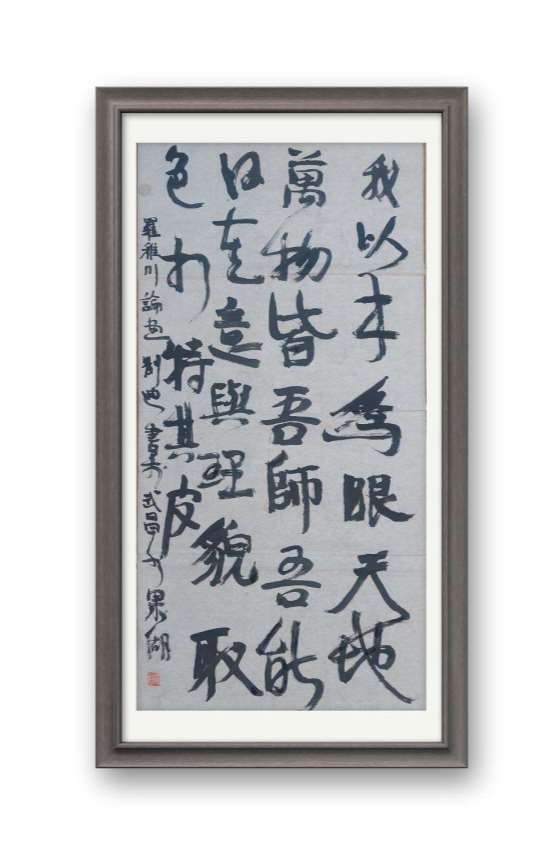 我以手為眼天地
萬物皆吾師吾能
得其意與理貌取
色相特其皮
羅稚川論畫 書於武昌水果湖